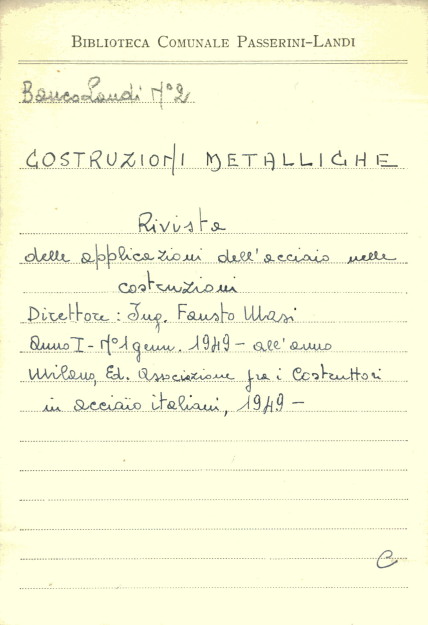 BIBLIOTECA COMUNALE PASSERINI-LANDI
Banco Landi N°2
COSTRUZIONI METALLICHE
Rivista
delle applicazioni dell'acciaio nelle
costruzioni
Direttore: Ing. Fausto Masi
Anno I - N°1 genn. 1949 - all'anno
Milano, Ed. Associazione fra i Costruttori
in acciaio italiani, 1949 -
C